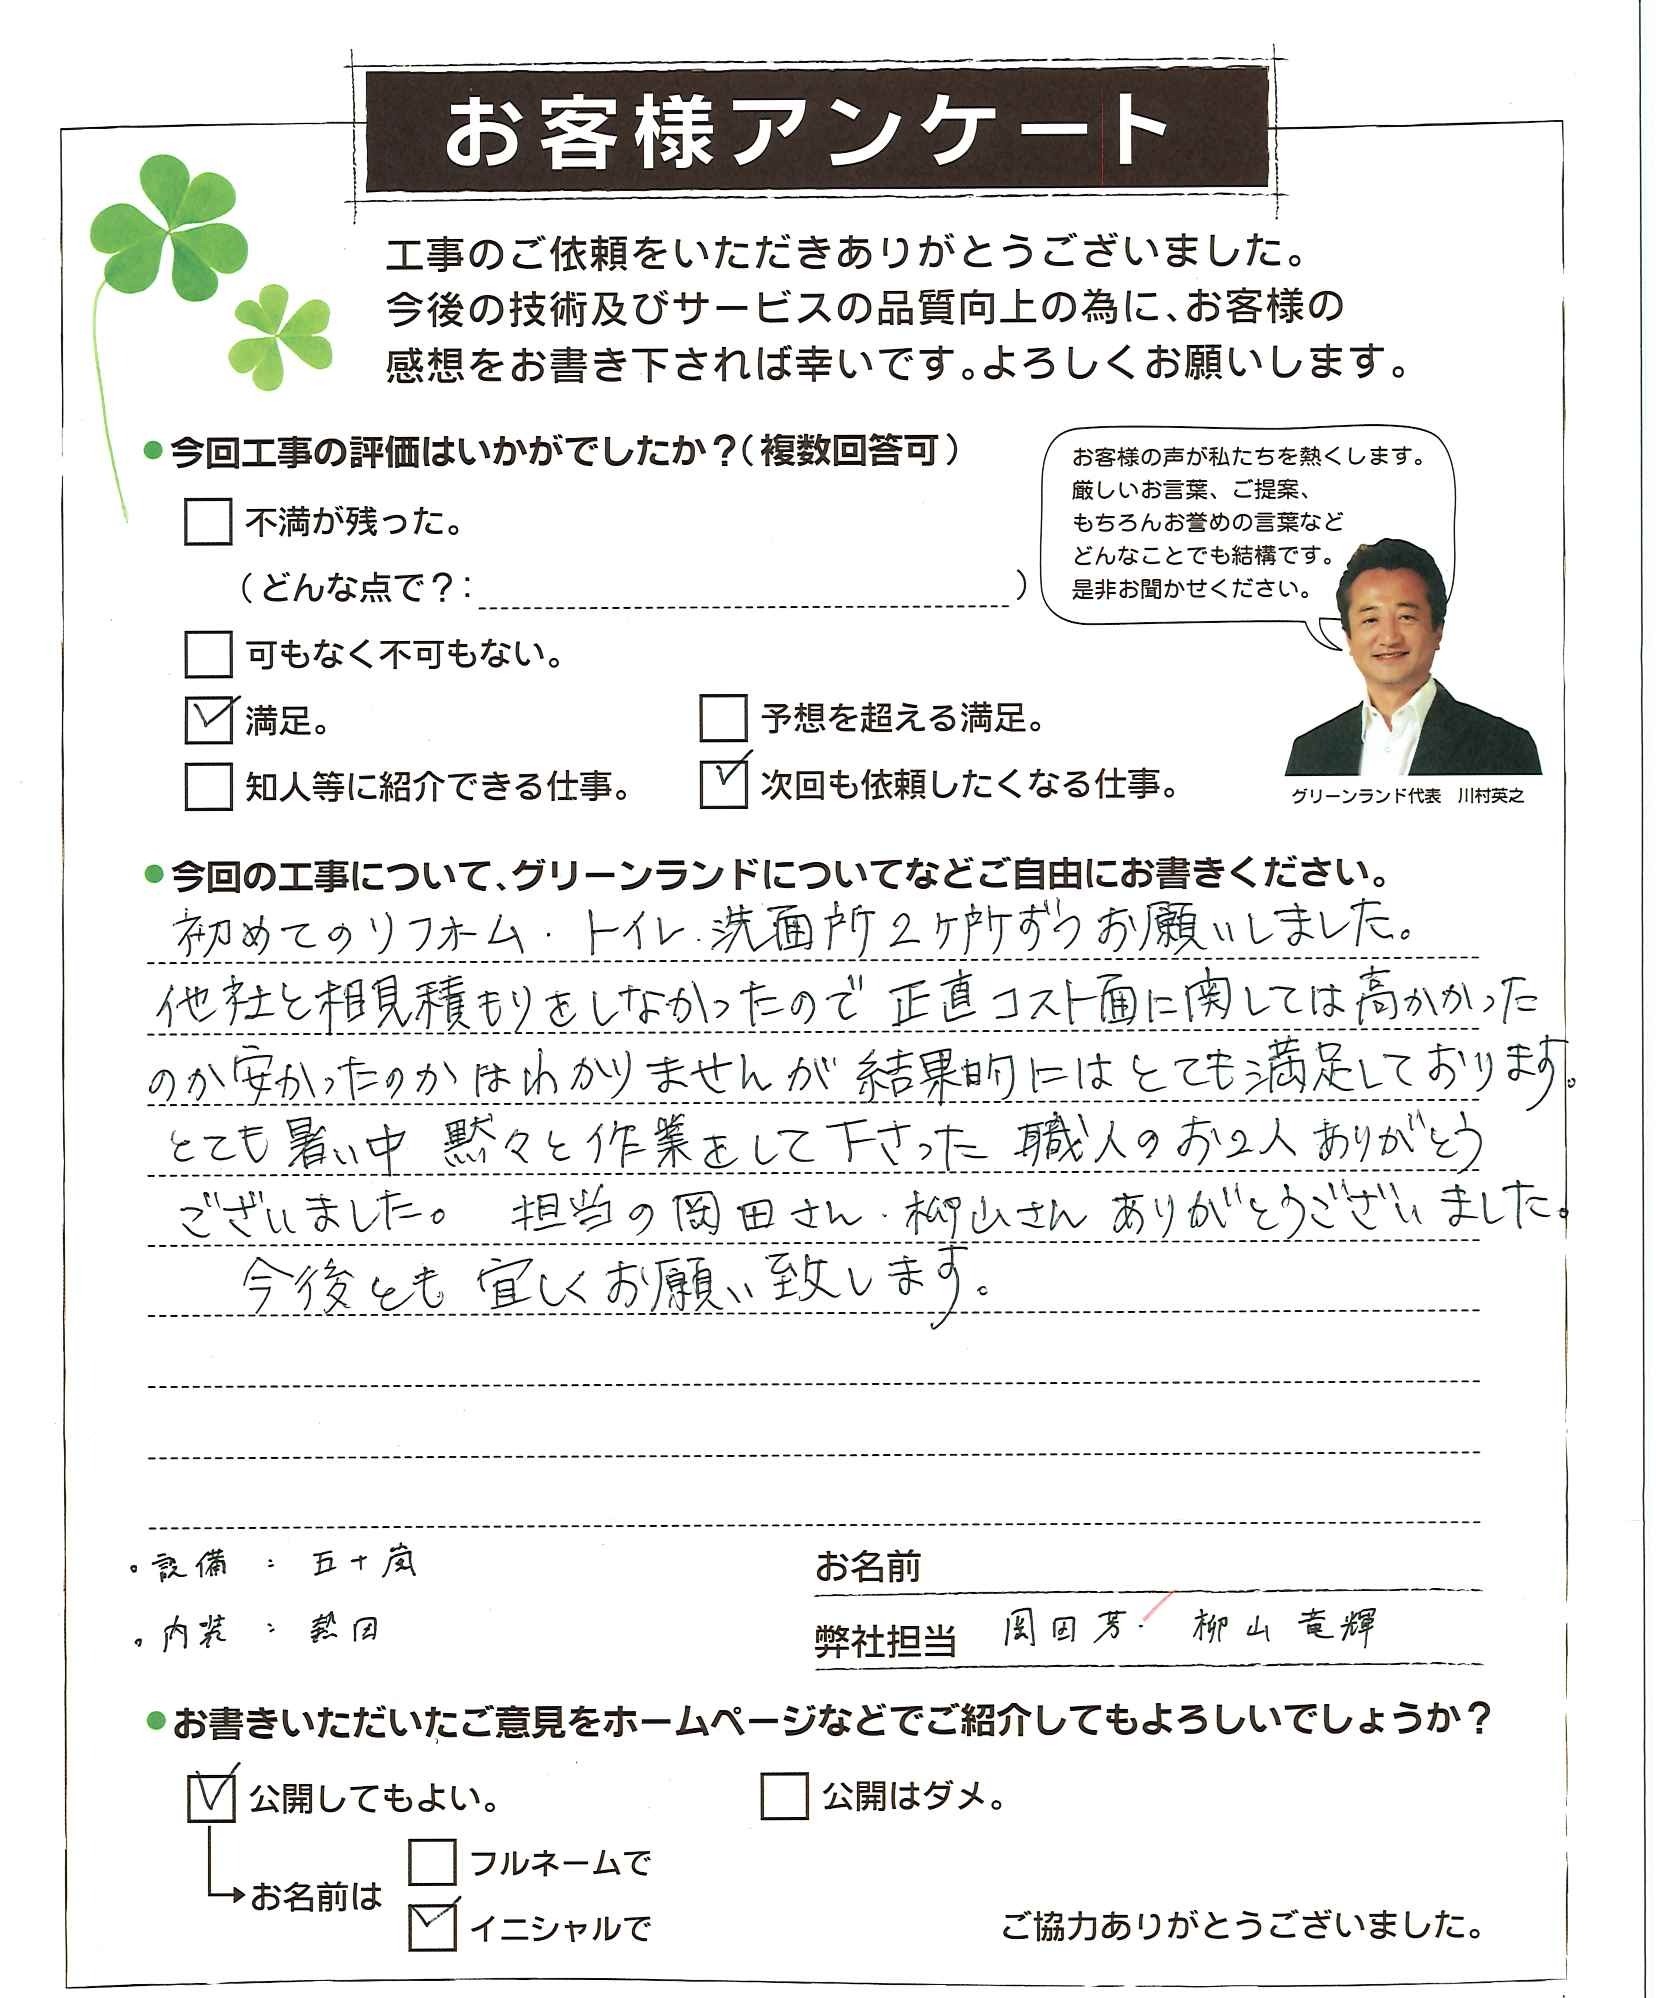 お客様アンケート
工事のご依頼をいただきありがとうございました。
今後の技術及びサービスの品質向上の為に、お客様の
感想をお書き下されば幸いです。よろしくお願いします。
●今回工事の評価はいかがでしたか？（複数回答可）
不満が残った。
（どんな点で？：　　　　）
可もなく不可もない。
満足。
予想を超える満足。
知人等に紹介できる仕事。
次回も依頼したくなる仕事。
お客様の声が私たちを熱くします。
厳しいお言葉、ご提案、
もちろんお誉めの言葉など
どんなことでも結構です。
是非お聞かせください。
グリーンランド代表　川村英之
●今回の工事について、グリーンランドについてなどご自由にお書きください。
初めてのリフォーム・トイレ・洗面所２ヶ所ずつお願いしました。
他社と相見積もりをしなかったので 正直コスト面に関しては高かかった
のか安かったのかはわかりませんが 結果的にはとても満足しております。
とても暑い中 黙々と作業をして下さった 職人のお２人ありがとう
ございました。 担当の岡田さん・柳山さん ありがとうございました。
今後とも 宜しくお願い致します。
。設備：五十嵐
。内装：熱田
お名前
弊社担当　岡田芳・柳山竜輝
●お書きいただいたご意見をホームページなどでご紹介してもよろしいでしょうか？
公開してもよい。
公開はダメ。
お名前は
フルネームで
イニシャルで
ご協力ありがとうございました。